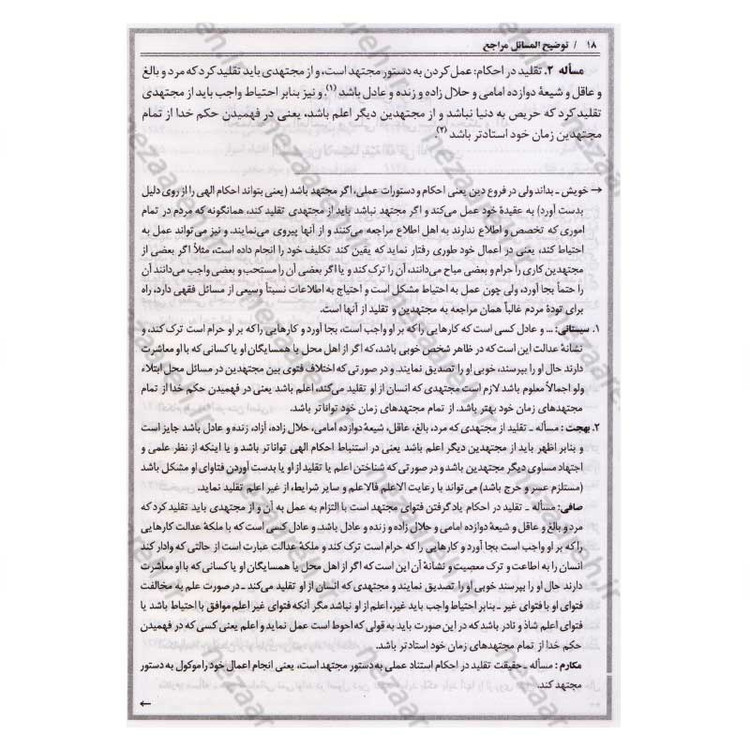 ۱۸ / توضیح المسائل مراجع
مسأله ۲. تقلید در احکام: عمل کردن به دستور مجتهد است، و از مجتهدی باید تقلید کرد که مرد و بالغ
و عاقل و شیعهٔ دوازده امامی و حلال زاده و زنده و عادل باشد (۱). و نیز بنابر احتیاط واجب باید از مجتهدی
تقلید کرد که حریص به دنیا نباشد و از مجتهدین دیگر اعلم باشد، یعنی در فهمیدن حکم خدا از تمام
مجتهدین زمان خود استادتر باشد (۲)
→ خویش ـ بداند ولی در فروع دین یعنی احکام و دستورات عملی، اگر مجتهد باشد (یعنی بتواند احکام الهی را از روی دلیل
بدست آورد) به عقیدهٔ خود عمل می‌کند و اگر مجتهد نباشد باید از مجتهدی تقلید کند، همانگونه که مردم در تمام
اموری که تخصص و اطلاع ندارند به اهل اطلاع مراجعه می‌کنند و از آنها پیروی می‌نمایند. و نیز می‌تواند عمل به
احتیاط کند، یعنی در اعمال خود طوری رفتار نماید که یقین کند تکلیف خود را انجام داده است، مثلاً اگر بعضی از
مجتهدین کاری را حرام و بعضی مباح می‌دانند، آن را ترک کند و یا اگر بعضی آن را مستحب و بعضی واجب می‌دانند آن
را حتماً بجا آورد، ولی چون عمل به احتیاط مشکل است و احتیاج به اطلاعات نسبتاً وسیعی از مسائل فقهی دارد، راه
برای تودهٔ مردم غالباً همان مراجعه به مجتهدین و تقلید از آنها است.
۱. سیستانی: ... و عادل کسی است که کارهایی را که بر او واجب است، بجا آورد و کارهایی را که بر او حرام است ترک کند، و
نشانهٔ عدالت این است که در ظاهر شخص خوبی باشد، که اگر از اهل محل یا همسایگان او یا کسانی که با او معاشرت
دارند حال او را بپرسند، خوبی او را تصدیق نمایند. و در صورتی که اختلاف فتوی بین مجتهدین در مسائل محل ابتلاء
ولو اجمالاً معلوم باشد لازم است مجتهدی که انسان از او تقلید می‌کند، اعلم باشد یعنی در فهمیدن حکم خدا از تمام
مجتهدهای زمان خود بهتر باشد. از تمام مجتهدهای زمان خود تواناتر باشد.
۲. بهجت: مسأله ـ تقلید از مجتهدی که مرد، بالغ، عاقل، شیعهٔ دوازده امامی، حلال زاده، آزاد، زنده و عادل باشد جایز است
و بنابر اظهر باید از مجتهدین دیگر اعلم باشد یعنی در استنباط احکام الهی تواناتر باشد و یا اینکه از نظر علمی و
اجتهاد مساوی دیگر مجتهدین باشد و در صورتی که شناختن اعلم یا تقلید از او یا بدست آوردن فتاوای او مشکل باشد
(مستلزم عسر و حرج باشد) می‌تواند با رعایت الاعلم فالاعلم و سایر شرایط، از غیر اعلم تقلید نماید.
صافی: مسأله ـ تقلید در احکام یاد گرفتن فتوای مجتهد است با التزام به عمل به آن و از مجتهدی باید تقلید کرد که
مرد و بالغ و عاقل و شیعهٔ دوازده امامی و حلال زاده و زنده و عادل باشد. و عادل کسی است که با ملکهٔ عدالت کارهایی
را که بر او واجب است بجا آورد و کارهایی را که حرام است ترک کند و ملکهٔ عدالت عبارت است از حالتی که وادار کند
انسان را به اطاعت و ترک معصیت و نشانهٔ آن این است که اگر از اهل محل یا همسایگان او یا کسانی که با او معاشرت
دارند حال او را بپرسند خوبی او را تصدیق نمایند و مجتهدی که انسان از او تقلید می‌کند ـ در صورت علم به مخالفت
فتوای او با فتوای غیر ـ بنابر احتیاط واجب باید غیر، اعلم از او نباشد مگر آنکه فتوای غیر اعلم موافق با احتیاط باشد یا
فتوای اعلم شاذ و نادر باشد که در این صورت باید به قولی که احوط است عمل نماید و اعلم یعنی کسی که در فهمیدن
حکم خدا از تمام مجتهدهای زمان خود استادتر باشد.
مکارم: مسأله ـ حقیقت تقلید در احکام استناد عملی به دستور مجتهد است، یعنی انجام اعمال خود را موکول به دستور
مجتهد کند.
←
nezaareh.ir